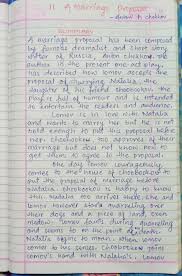 11 A Marriage Proposal
- Anton P. chekhov
SUMMARY
A marriage proposal has been composed
by famous dramatist and short story
writer of Russia, Anton chekhov. The
author in the present one act play
has described how lomov accepts the
proposal of marrying Natalia, the
daughter of his friend chookhov. The
play is full of humour and is intended
to entertain the readers and audience.
Lomov is in love with Natalia
and wants to marry her but he is not
bold enough to put this proposal before
her. Chookhov too approves of this
marriage but does not know how to
get them to agree to the proposal.
One day Lomov courageously
comes to the house of Choobookov to
put the proposal of marriage before
Natalia. Chookhov is happy to know
this. Natalia too arrives there. She and
lomov started to quarrel over
their dogs and a piece of land, oxen
meadow. Lomov faints during quarrelling
and seems to on the point of death.
Natalia begins to moan. When lomov
comes in his senses, Choobookov joins
lomov's hand with Natalia's. Lomov